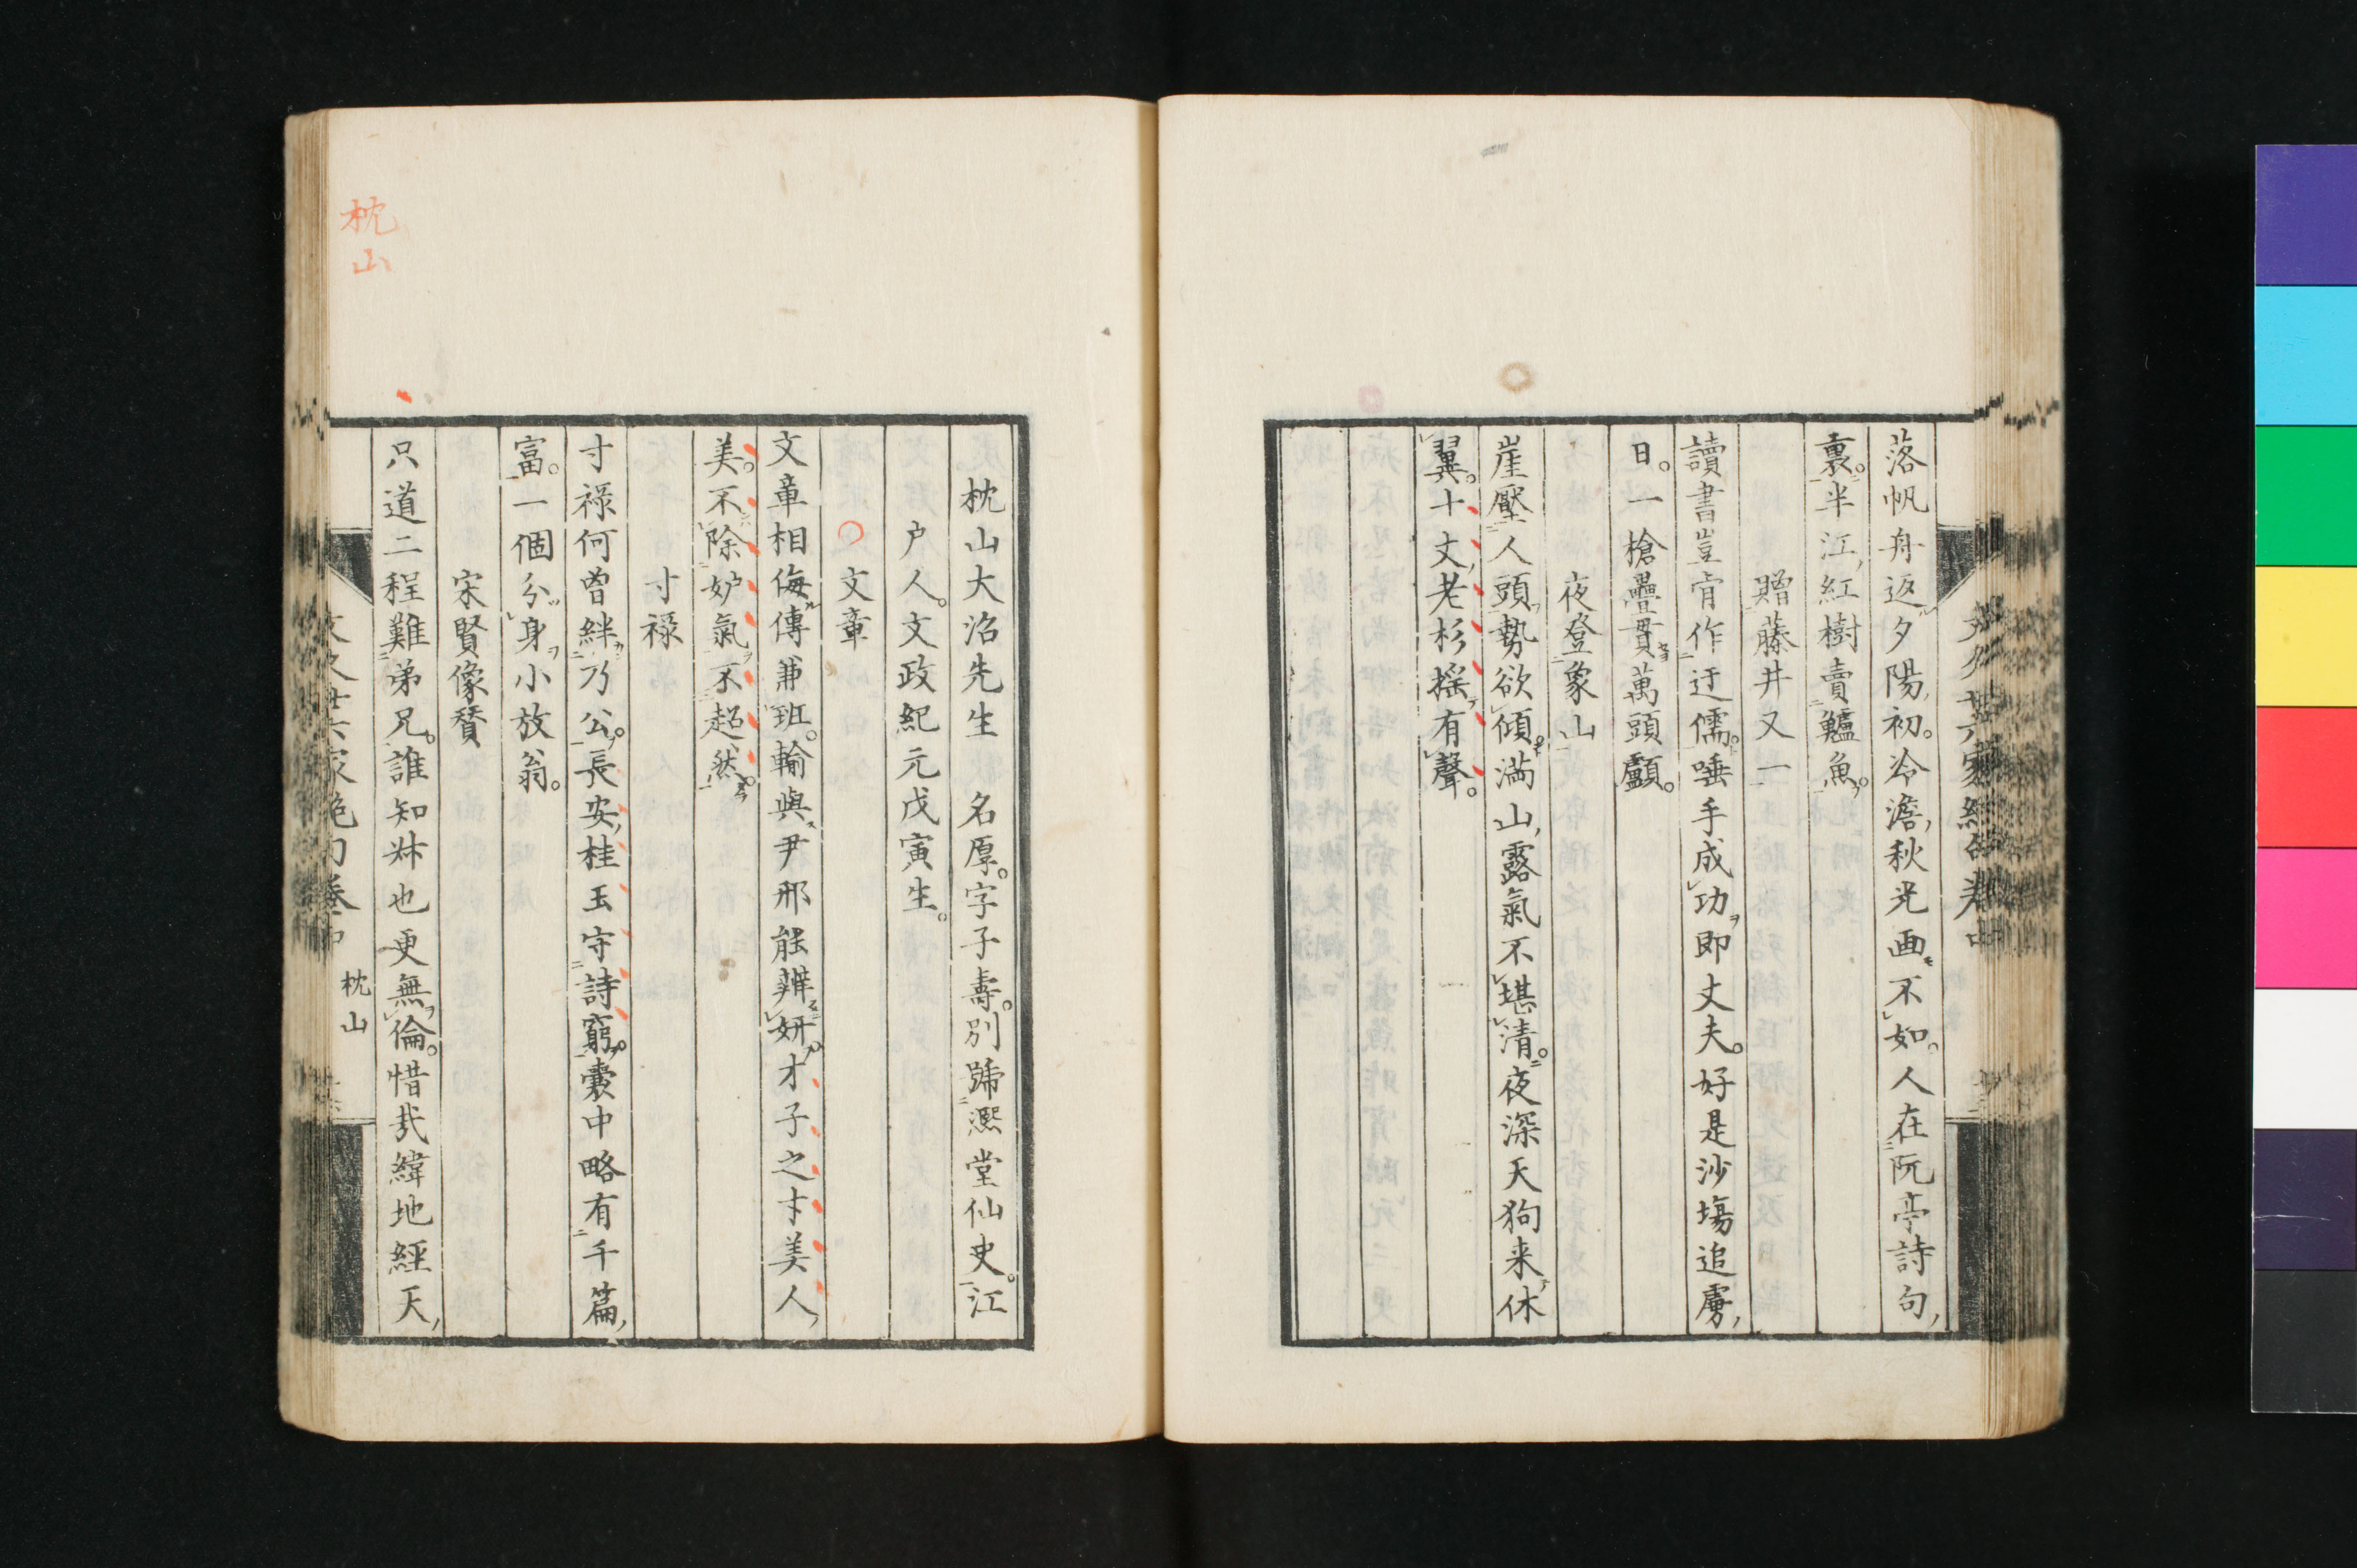 落帆舟返夕陽初。冷澹秋光画不如。人在阮亭詩句
裏。半江紅樹賣鱸魚。
贈藤井又一
讀書豈肯作迂儒。唾手成功即丈夫。好是沙塲追虜
日。一槍疊貫萬頭顱。
夜登象山
崖壓人頭勢欲傾。満山露氣不堪清。夜深天狗来休
翼。十丈老杉搖有聲。
枕山大沼先生 名厚。字子壽。別號熈堂仙史。江
戸人。文政紀元戊寅生。
文章
文章相侮傳兼班。輸與尹邢能辨妍。才子之才美人
美。不除妒氣不超然。
寸祿
寸祿何曾絆乃公。長安桂玉守詩窮。囊中略有千篇
富。一個分身小放翁。
宋賢像賛
只道二程難弟兄。誰知妹也更無倫。惜哉緯地經天
枕山
枕山